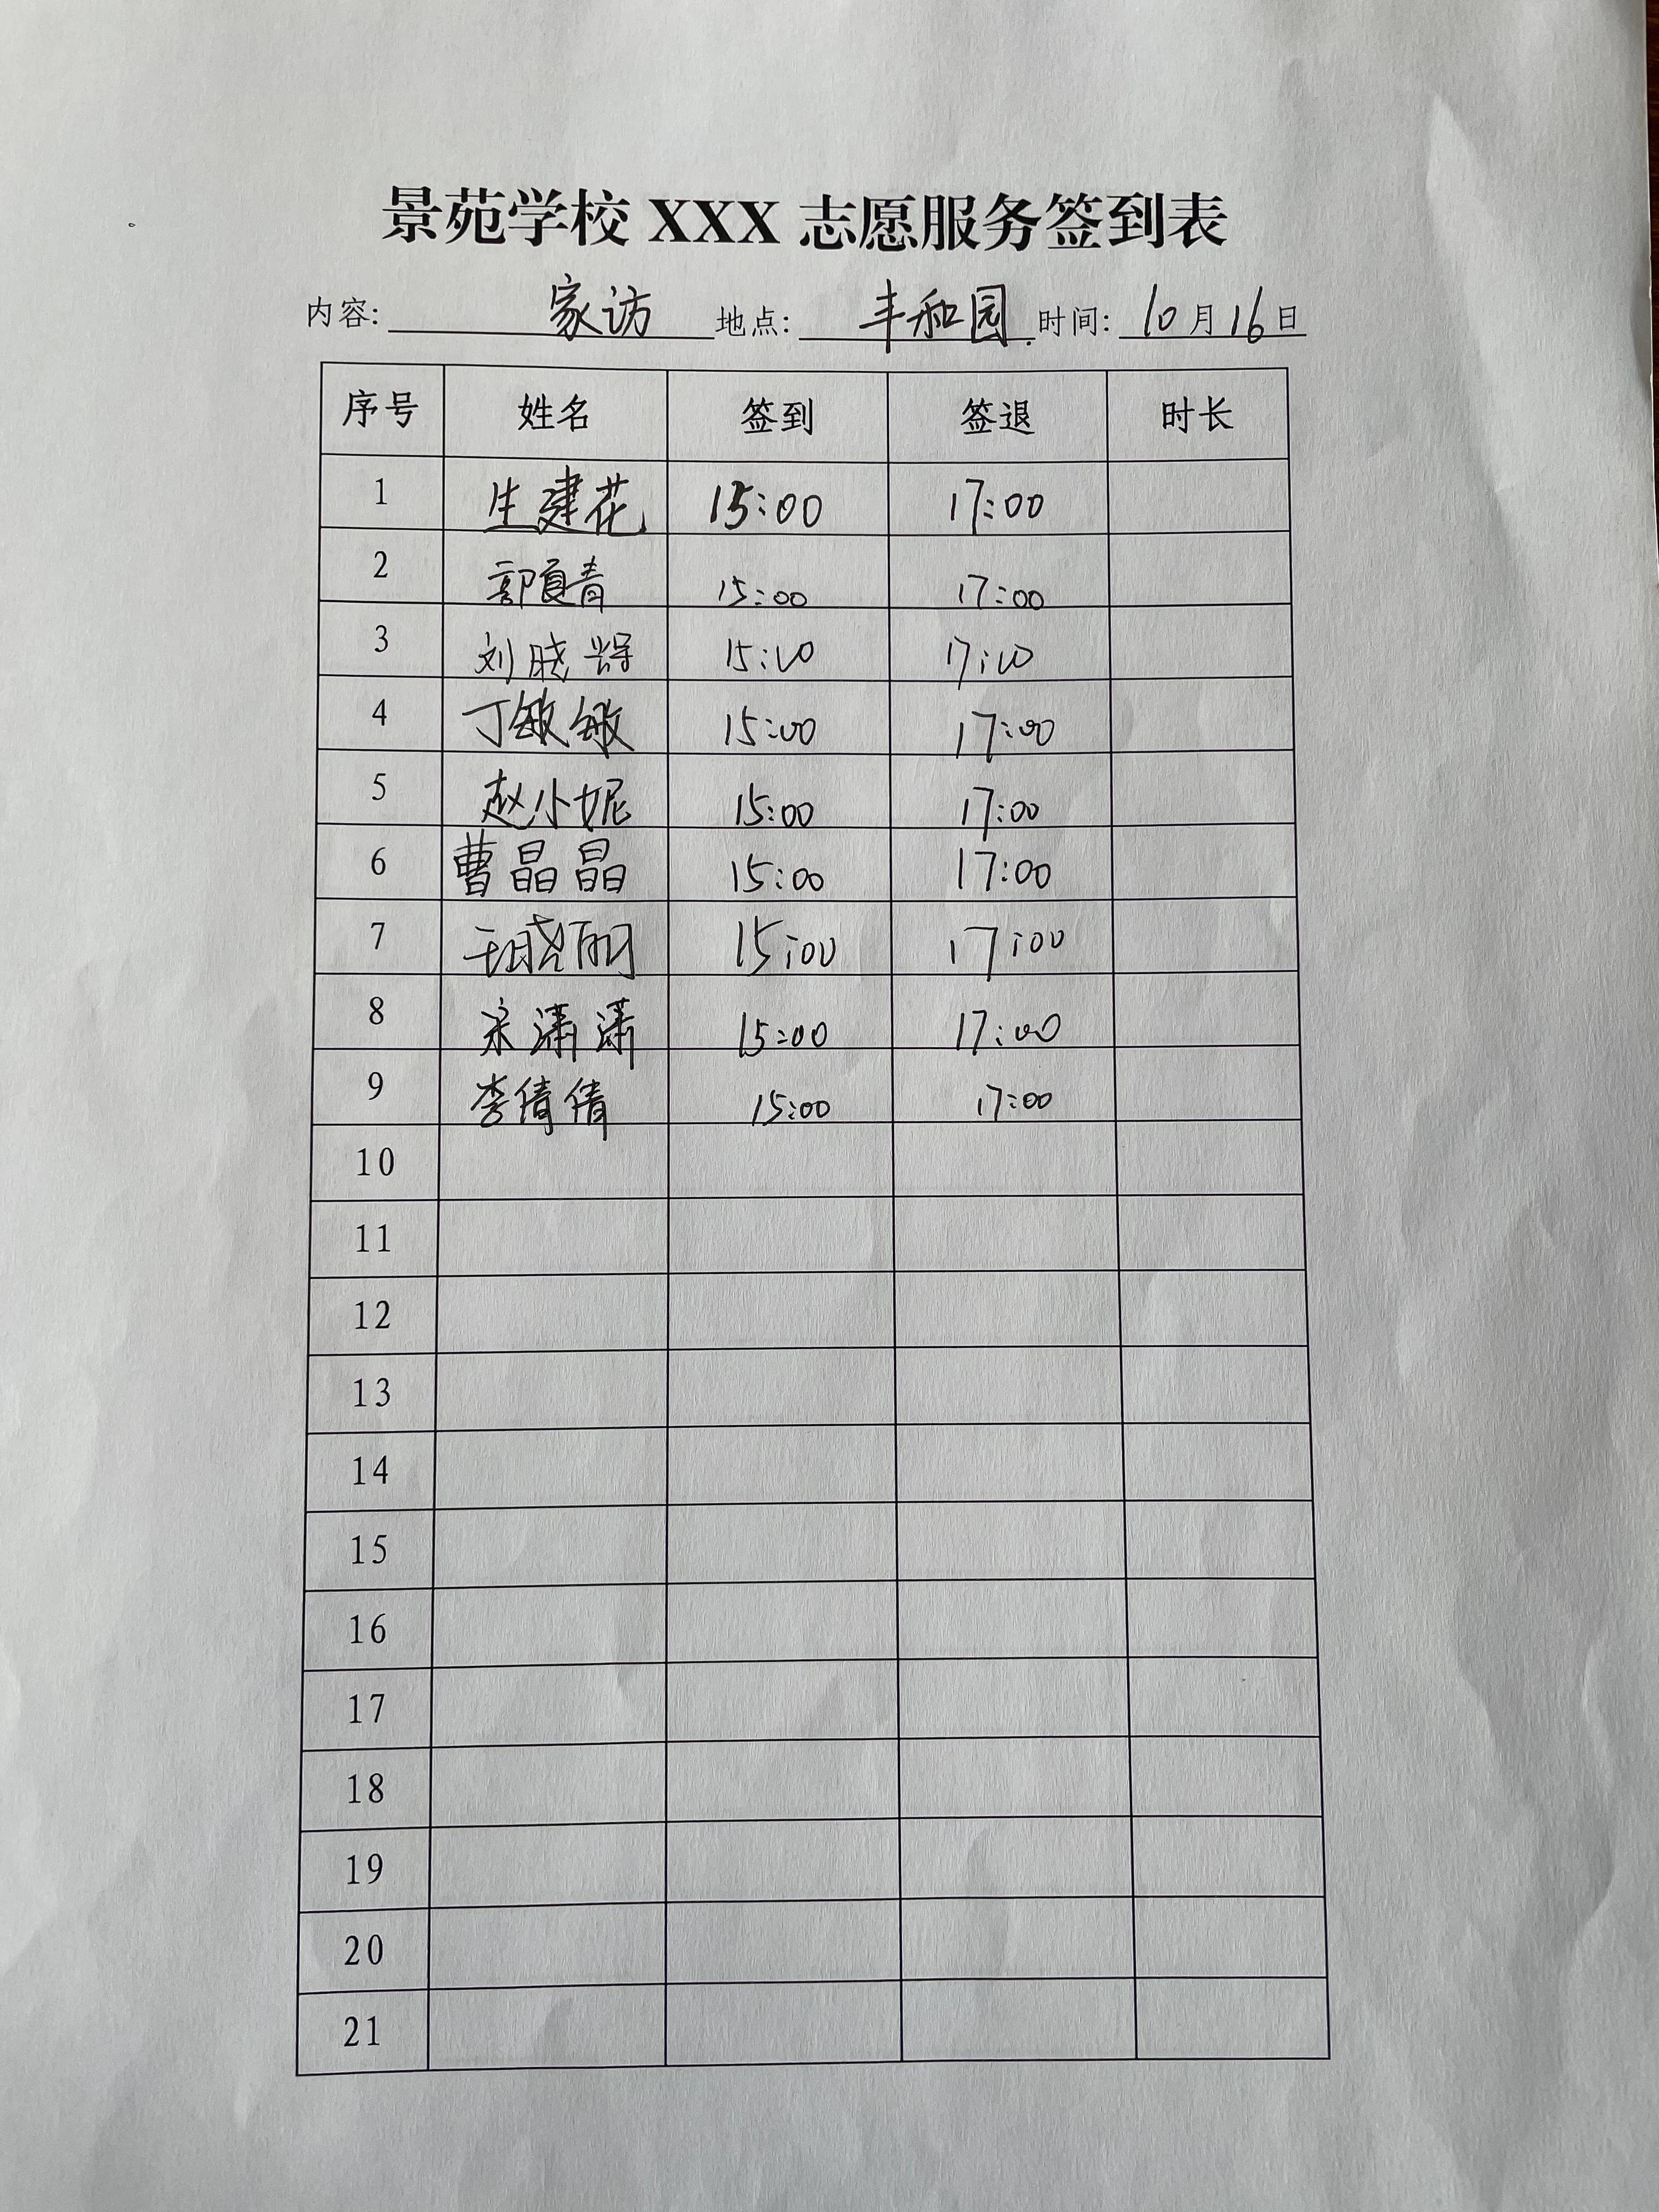 景苑学校 XXX 志愿服务签到表
内容: 家访 地点: 丰和园 时间: 10月16日
序号 姓名 签到 签退 时长
1 生建花 15:00 17:00
2 郭良青 15:00 17:00
3 刘晓辉 15:00 17:00
4 丁敏敏 15:00 17:00
5 赵小妮 15:00 17:00
6 曹晶晶 15:00 17:00
7 王晓丽 15:00 17:00
8 宋潇潇 15:00 17:00
9 李倩倩 15:00 17:00
10
11
12
13
14
15
16
17
18
19
20
21